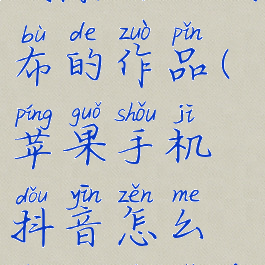 bù de zuò pǐn
布的作品(
píng guǒ shǒu jī
苹果手机
dǒu yīn zěn me
抖音怎么